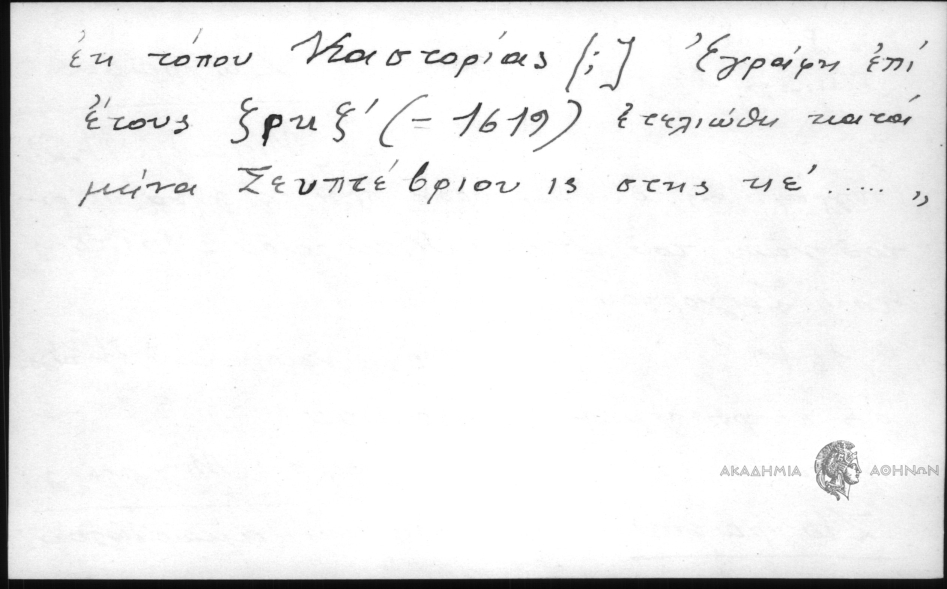 ἐκ τόπου Καστορίας [;] Ἐγράφη ἐπί
ἔτους ξρκξ΄ (= 1619) ἐτελιώθη κατά
μῆνα Σευπτέβριον ις στης κέ ..... „
ΑΚΑΔΗΜΙΑ ΑΘΗΝΩΝ